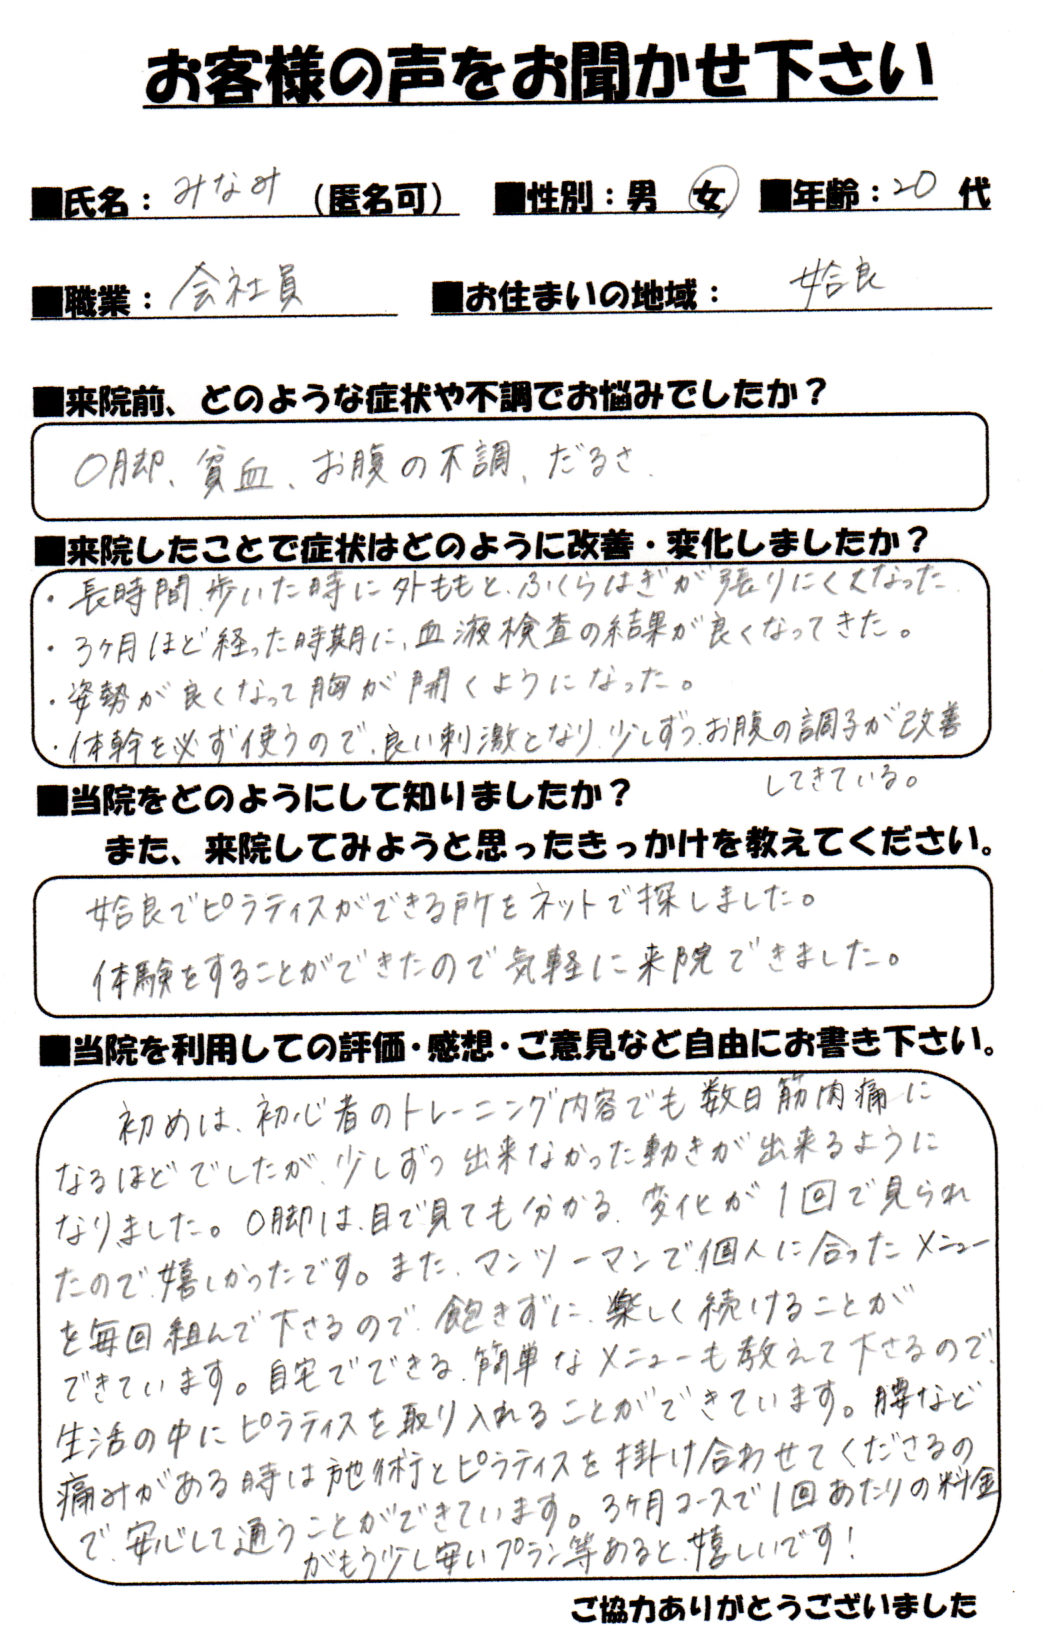 お客様の声をお聞かせ下さい
■氏名：みなみ（匿名可） ■性別：男 女 ■年齢：20 代
■職業：会社員 ■お住まいの地域：姶良
■来院前、どのような症状や不調でお悩みでしたか？
O脚、貧血、お腹の不調、だるさ.
■来院したことで症状はどのように改善・変化しましたか？
・長時間、歩いた時に外ももと、ふくらはぎが張りにくくなった.
・3ヶ月ほど経った時期に、血液検査の結果が良くなってきた。
・姿勢が良くなって胸が開くようになった。
・体幹を必ず使うので、良い刺激となり、少しずつ、お腹の調子が改善
してきている。
■当院をどのようにして知りましたか？
また、来院してみようと思ったきっかけを教えてください。
姶良でピラティスができる所をネットで探しました。
体験をすることができたので気軽に来院できました。
■当院を利用しての評価・感想・ご意見など自由にお書き下さい。
初めは、初心者のトレーニング内容でも数日筋肉痛に
なるほどでしたが、少しずつ出来なかった動きが出来るように
なりました。O脚は、目で見ても分かる、変化が1回で見られ
たので、嬉しかったです。また、マンツーマンで、個人に合ったメニュー
を毎回組んで下さるので、飽きずに、楽しく続けることが
できています。自宅でできる、簡単なメニューも教えて下さるので、
生活の中にピラティスを取り入れることができています。腰など
痛みがある時は施術とピラティスを掛け合わせてくださるの
で、安心して通うことができています。3ヶ月コースで1回あたりの料金
がもう少し安いプラン等あると、嬉しいです！
ご協力ありがとうございました